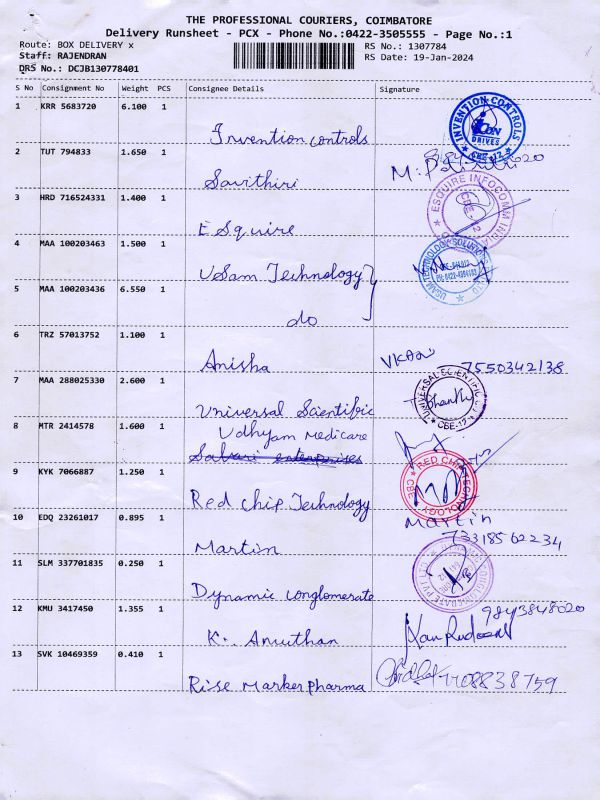 THE PROFESSIONAL COURIERS, COIMBATORE
Delivery Runsheet - PCX - Phone No.:0422-3505555 - Page No.:1
Route: BOX DELIVERY x
RS No.: 1307784
Staff: RAJENDRAN
RS Date: 19-Jan-2024
DRS No.: DCJB130778401
S No Consignment No Weight PCS Consignee Details Signature
1 KRR 5683720 6.100 1
Invention controls
INVENTION CONTROLS
ICON
DRIVES
CBE-12
2 TUT 794833 1.650 1
Savithiri
3 HRD 716524331 1.400 1
E Squire
ESQUIRE INFOCOMM INDIA
CBE-12
4 MAA 100203463 1.500 1
USam Technology
USAM TECHNOLOGY SOLUTIONS
5 MAA 100203436 6.550 1
do
6 TRZ 57013752 1.100 1
Anisha
7550342138
7 MAA 288025330 2.600 1
Universal Scientific
UNIVERSAL SCIENTIFIC
CBE-12
8 MTR 2414578 1.600 1
Udhyam Medicare
Sabari enterprises
9 KYK 7066887 1.250 1
Red chip Technology
RED CHIP TECHNOLOGY
CBE
10 EDQ 23261017 0.895 1
Martin
Martin
7331856 2234
11 SLM 337701835 0.250 1
Dynamic conglomerate
12 KMU 3417450 1.355 1
K. Amuthan
9843848020
13 SVK 10469359 0.410 1
Rise Marker pharma